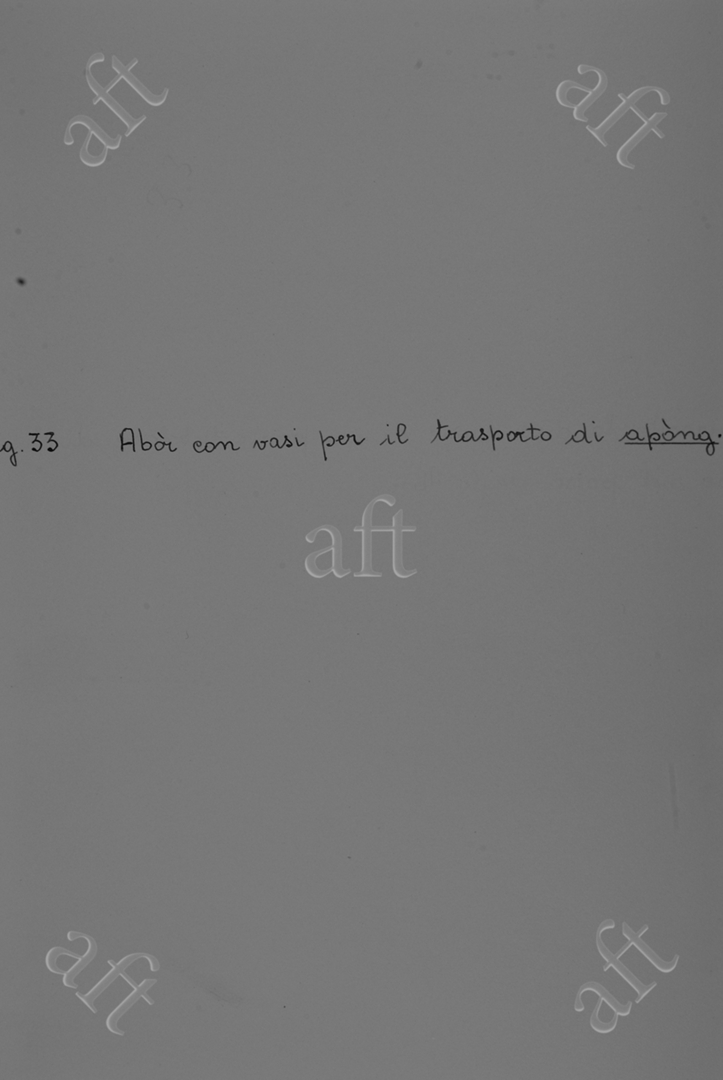 g. 33 Abòr con vasi per il trasporto di apòng.
aft
aft
aft
aft
aft